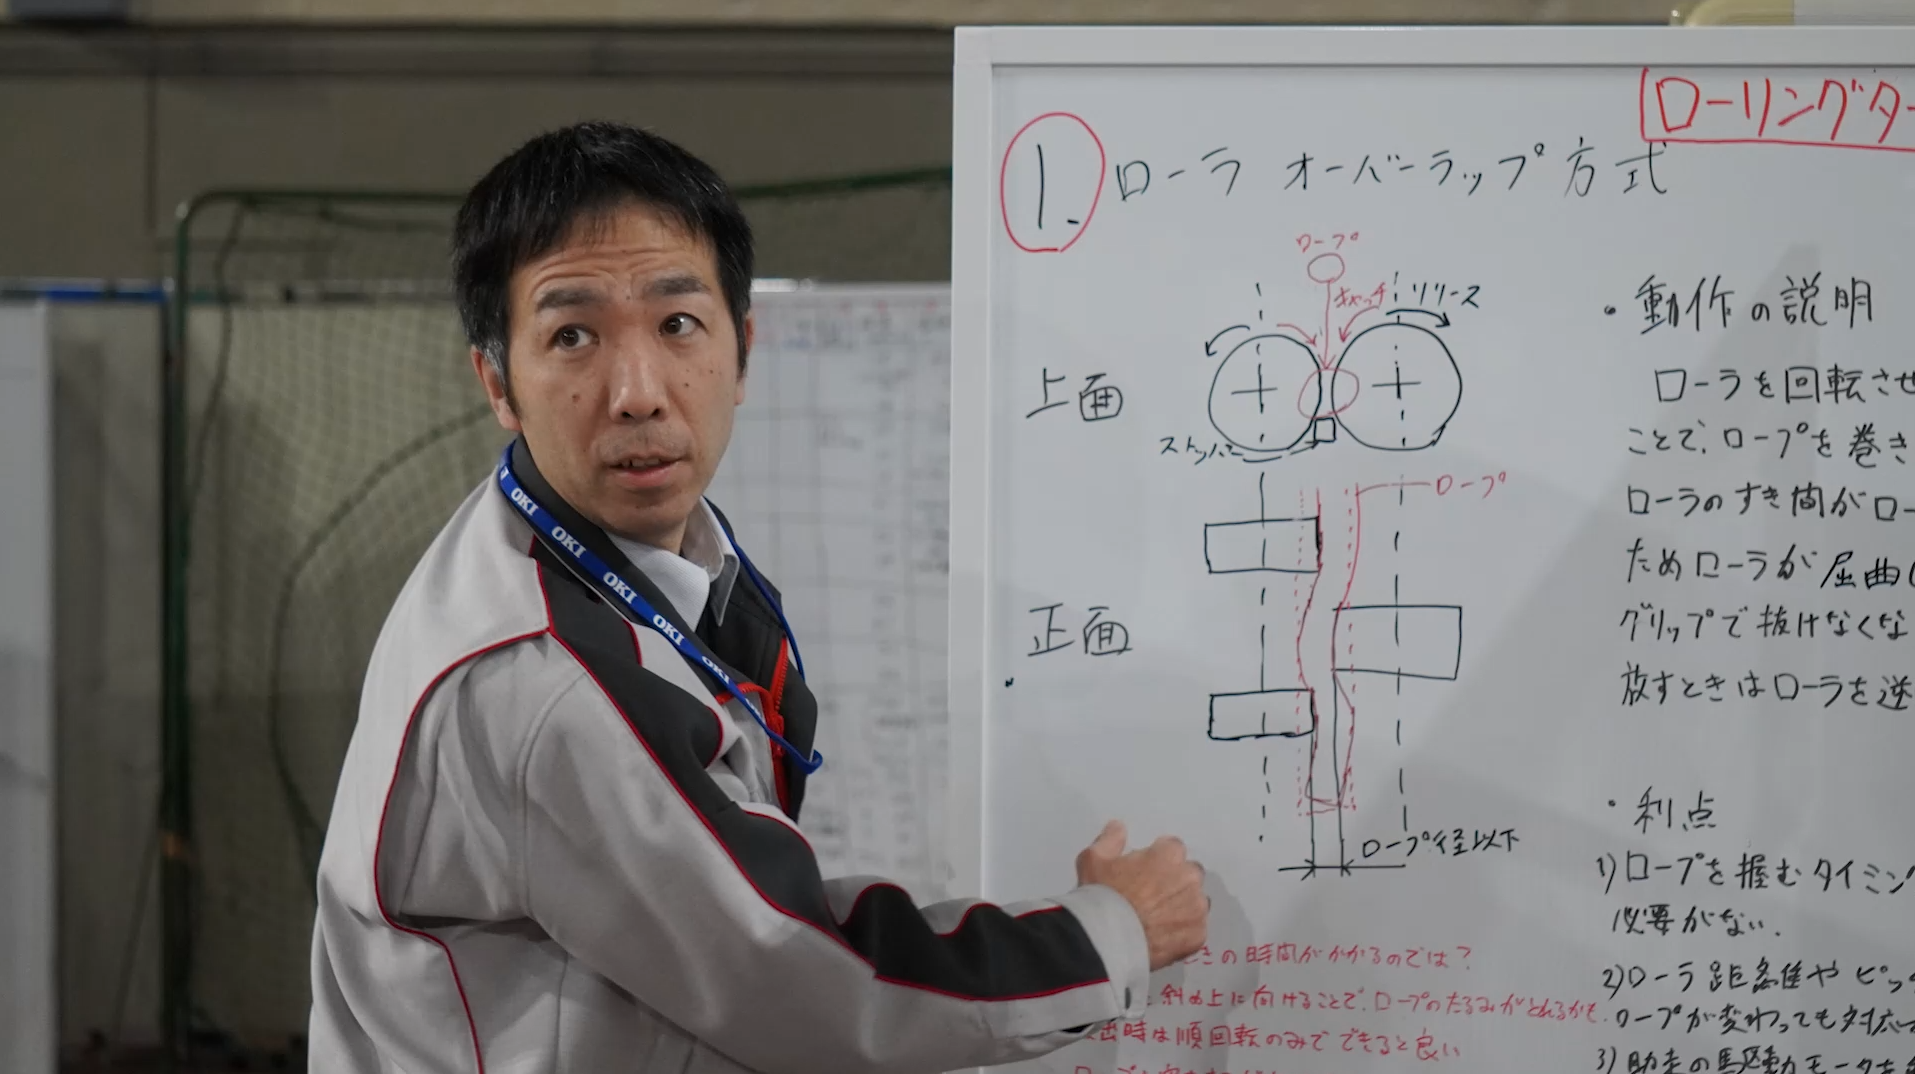 ローリングター
1. ローラ オーバーラップ方式
ロープ
キャッチ
リリース
上面
ストッパー
ロープ
正面
ロープ径以下
・動作の説明
ローラを回転させ
ことで、ロープを巻き
ローラのすき間がロー
ためローラが屈曲し
グリップで抜けなくな
放すときはローラを逆
・利点
1)ロープを握むタイミン
必要がない.
2)ローラ距離やピッ
ロープが変わっても対応
3)助走の駆動モータを
きの時間がかかるのでは?
斜め上に向けることで、ロープのたるみがとれるかも.
出時は順回転のみでできると良い
OKI
OKI
OKI
OKI
OKI